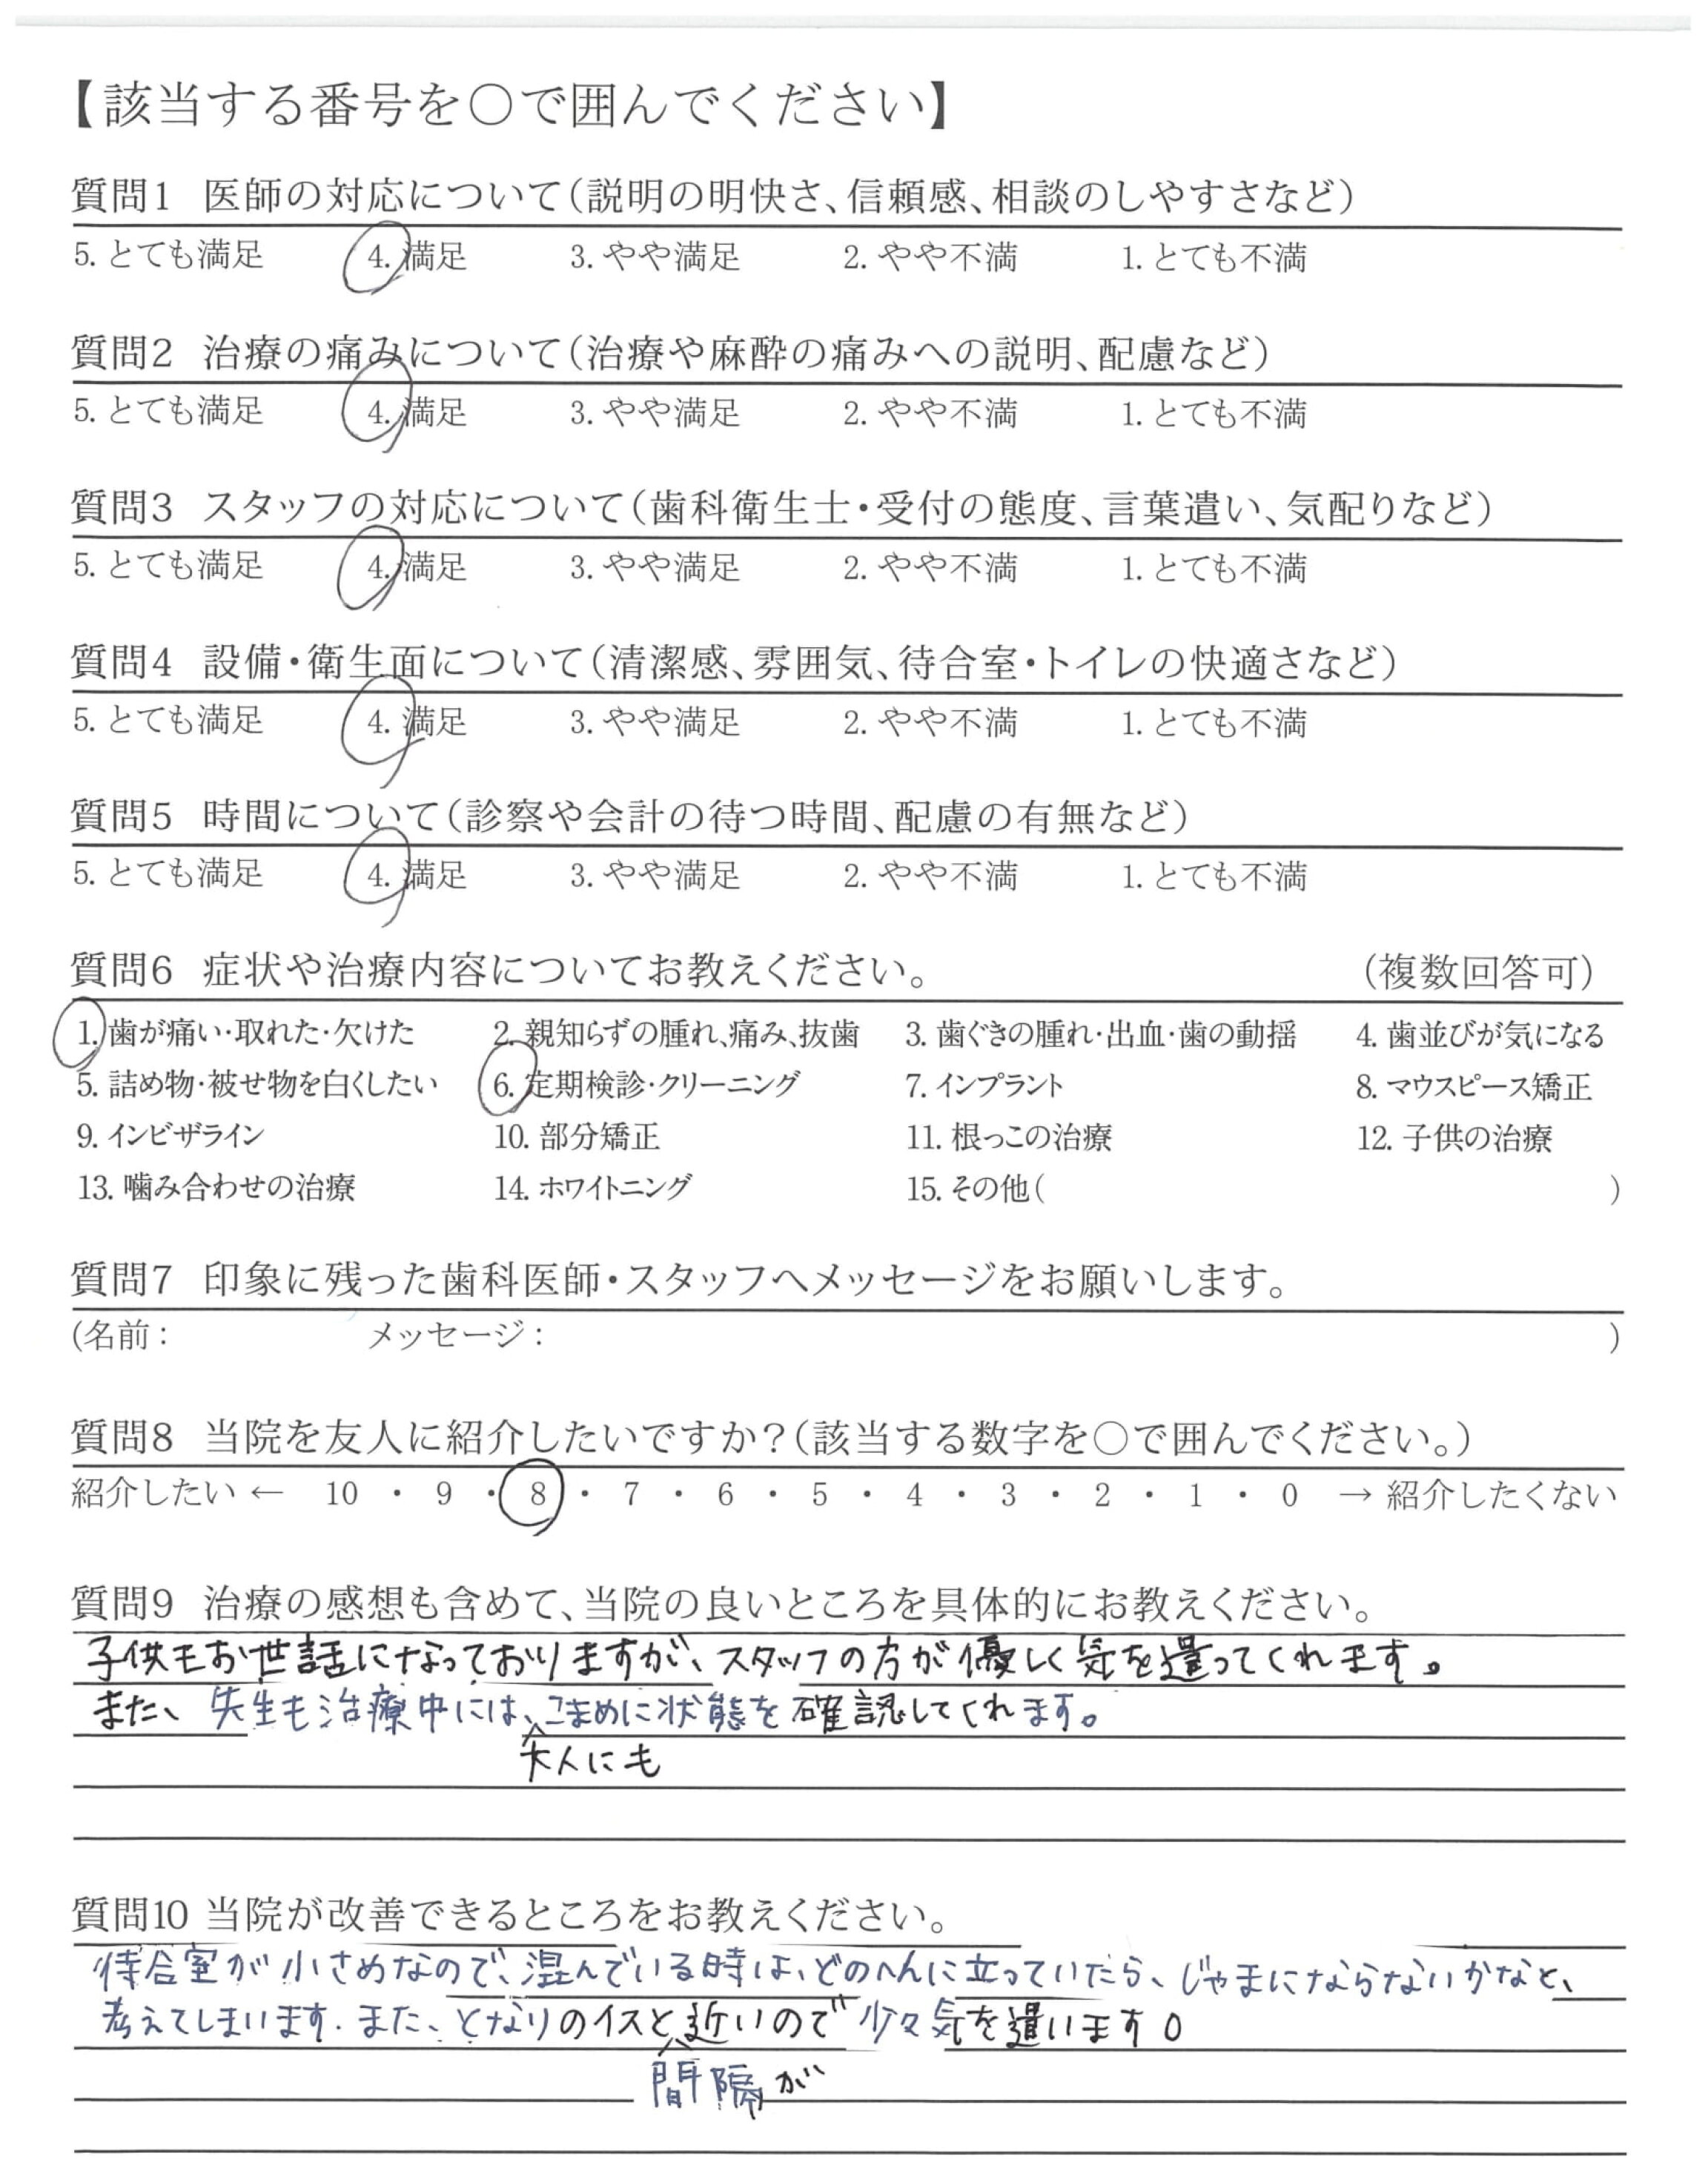 【該当する番号を○で囲んでください】
質問1 医師の対応について(説明の明快さ、信頼感、相談のしやすさなど)
5. とても満足 4. 満足 3. やや満足 2. やや不満 1. とても不満
質問2 治療の痛みについて(治療や麻酔の痛みへの説明、配慮など)
5. とても満足 4. 満足 3. やや満足 2. やや不満 1. とても不満
質問3 スタッフの対応について(歯科衛生士・受付の態度、言葉遣い、気配りなど)
5. とても満足 4. 満足 3. やや満足 2. やや不満 1. とても不満
質問4 設備・衛生面について(清潔感、雰囲気、待合室・トイレの快適さなど)
5. とても満足 4. 満足 3. やや満足 2. やや不満 1. とても不満
質問5 時間について(診察や会計の待つ時間、配慮の有無など)
5. とても満足 4. 満足 3. やや満足 2. やや不満 1. とても不満
質問6 症状や治療内容についてお教えください。 (複数回答可)
1. 歯が痛い・取れた・欠けた 2. 親知らずの腫れ、痛み、抜歯 3. 歯ぐきの腫れ・出血・歯の動揺 4. 歯並びが気になる
5. 詰め物・被せ物を白くしたい 6. 定期検診・クリーニング 7. インプラント 8. マウスピース矯正
9. インビザライン 10. 部分矯正 11. 根っこの治療 12. 子供の治療
13. 噛み合わせの治療 14. ホワイトニング 15. その他( )
質問7 印象に残った歯科医師・スタッフへメッセージをお願いします。
(名前: メッセージ: )
質問8 当院を友人に紹介したいですか?(該当する数字を○で囲んでください。)
紹介したい ← 10 ・ 9 ・ 8 ・ 7 ・ 6 ・ 5 ・ 4 ・ 3 ・ 2 ・ 1 ・ 0 → 紹介したくない
質問9 治療の感想も含めて、当院の良いところを具体的にお教えください。
子供もお世話になっておりますが、スタッフの方が優しく気を遣ってくれます。
また、先生も治療中には、こまめに状態を確認してくれます。
大人にも
質問10 当院が改善できるところをお教えください。
待合室が小さめなので、混んでいる時は、どのへんに立っていたら、じゃまにならないかなと、
考えてしまいます。また、となりのイスと近いので少々気を遣います。
間隔が